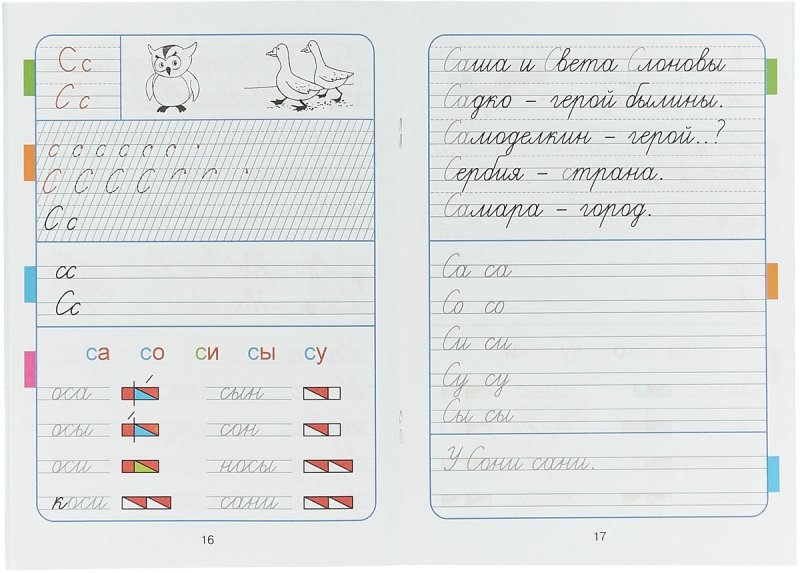 Сс
Сс
с с с с
С С С С
Сс
сс
Сс
са со си сы су
оса сын
осы сон
оси носы
коси сани
16
Саша и Света Слоновы
Садко – герой былины.
Самоделкин – герой..?
Сербия – страна.
Самара – город.
Са са
Со со
Си си
Су су
Сы сы
У Сони сани.
17